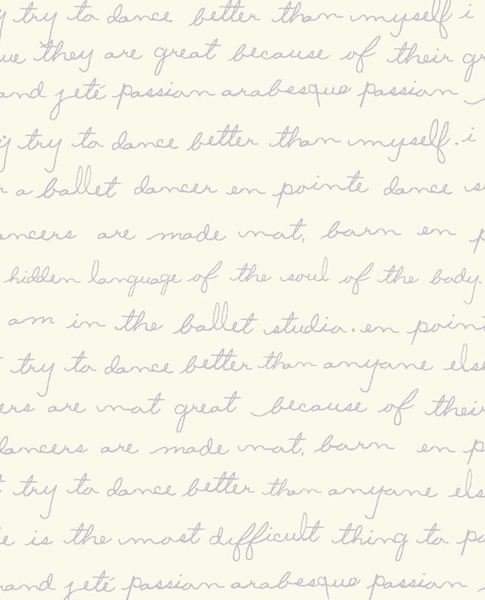 try to dance better than myself i
they are great because of their
and jeté passion arabesque passion
try to dance better than myself. i
a ballet dancer en pointe dance
are made not, born en
hidden language of the soul of the body.
am in the ballet studio. en
try to dance better than anyone
are not great because of their
dancers are made not, born en
try to dance better than anyone
is the most difficult thing to
and jeté passion arabesque passion